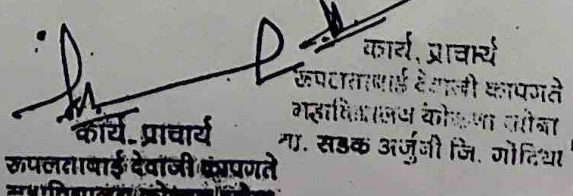 कार्य. प्राचार्य
रूपलताबाई देवाजी कापगते
महाविद्यालय
ता. सडक अर्जुनी जि. गोंदिया
कार्य. प्राचार्य
रूपलताबाई देवाजी कापगते